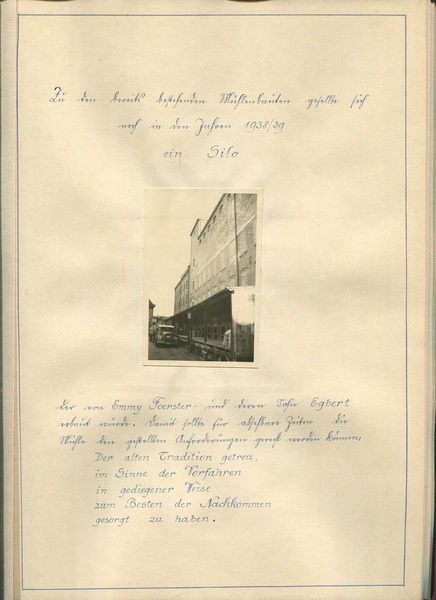 Zu den bereits bestehenden Mühlenbauten gesellte sich
noch in den Jahren 1938/39
ein Silo
der von Emmy Foerster und deren Sohn Egbert
erbaut wurde. Damit sollte für absehbare Zeiten die
Mühle den gestellten Anforderungen gerecht werden können,
Der alten Tradition getreu,
im Sinne der Vorfahren
in gediegener Weise
zum Besten der Nachkommen
gesorgt zu haben.